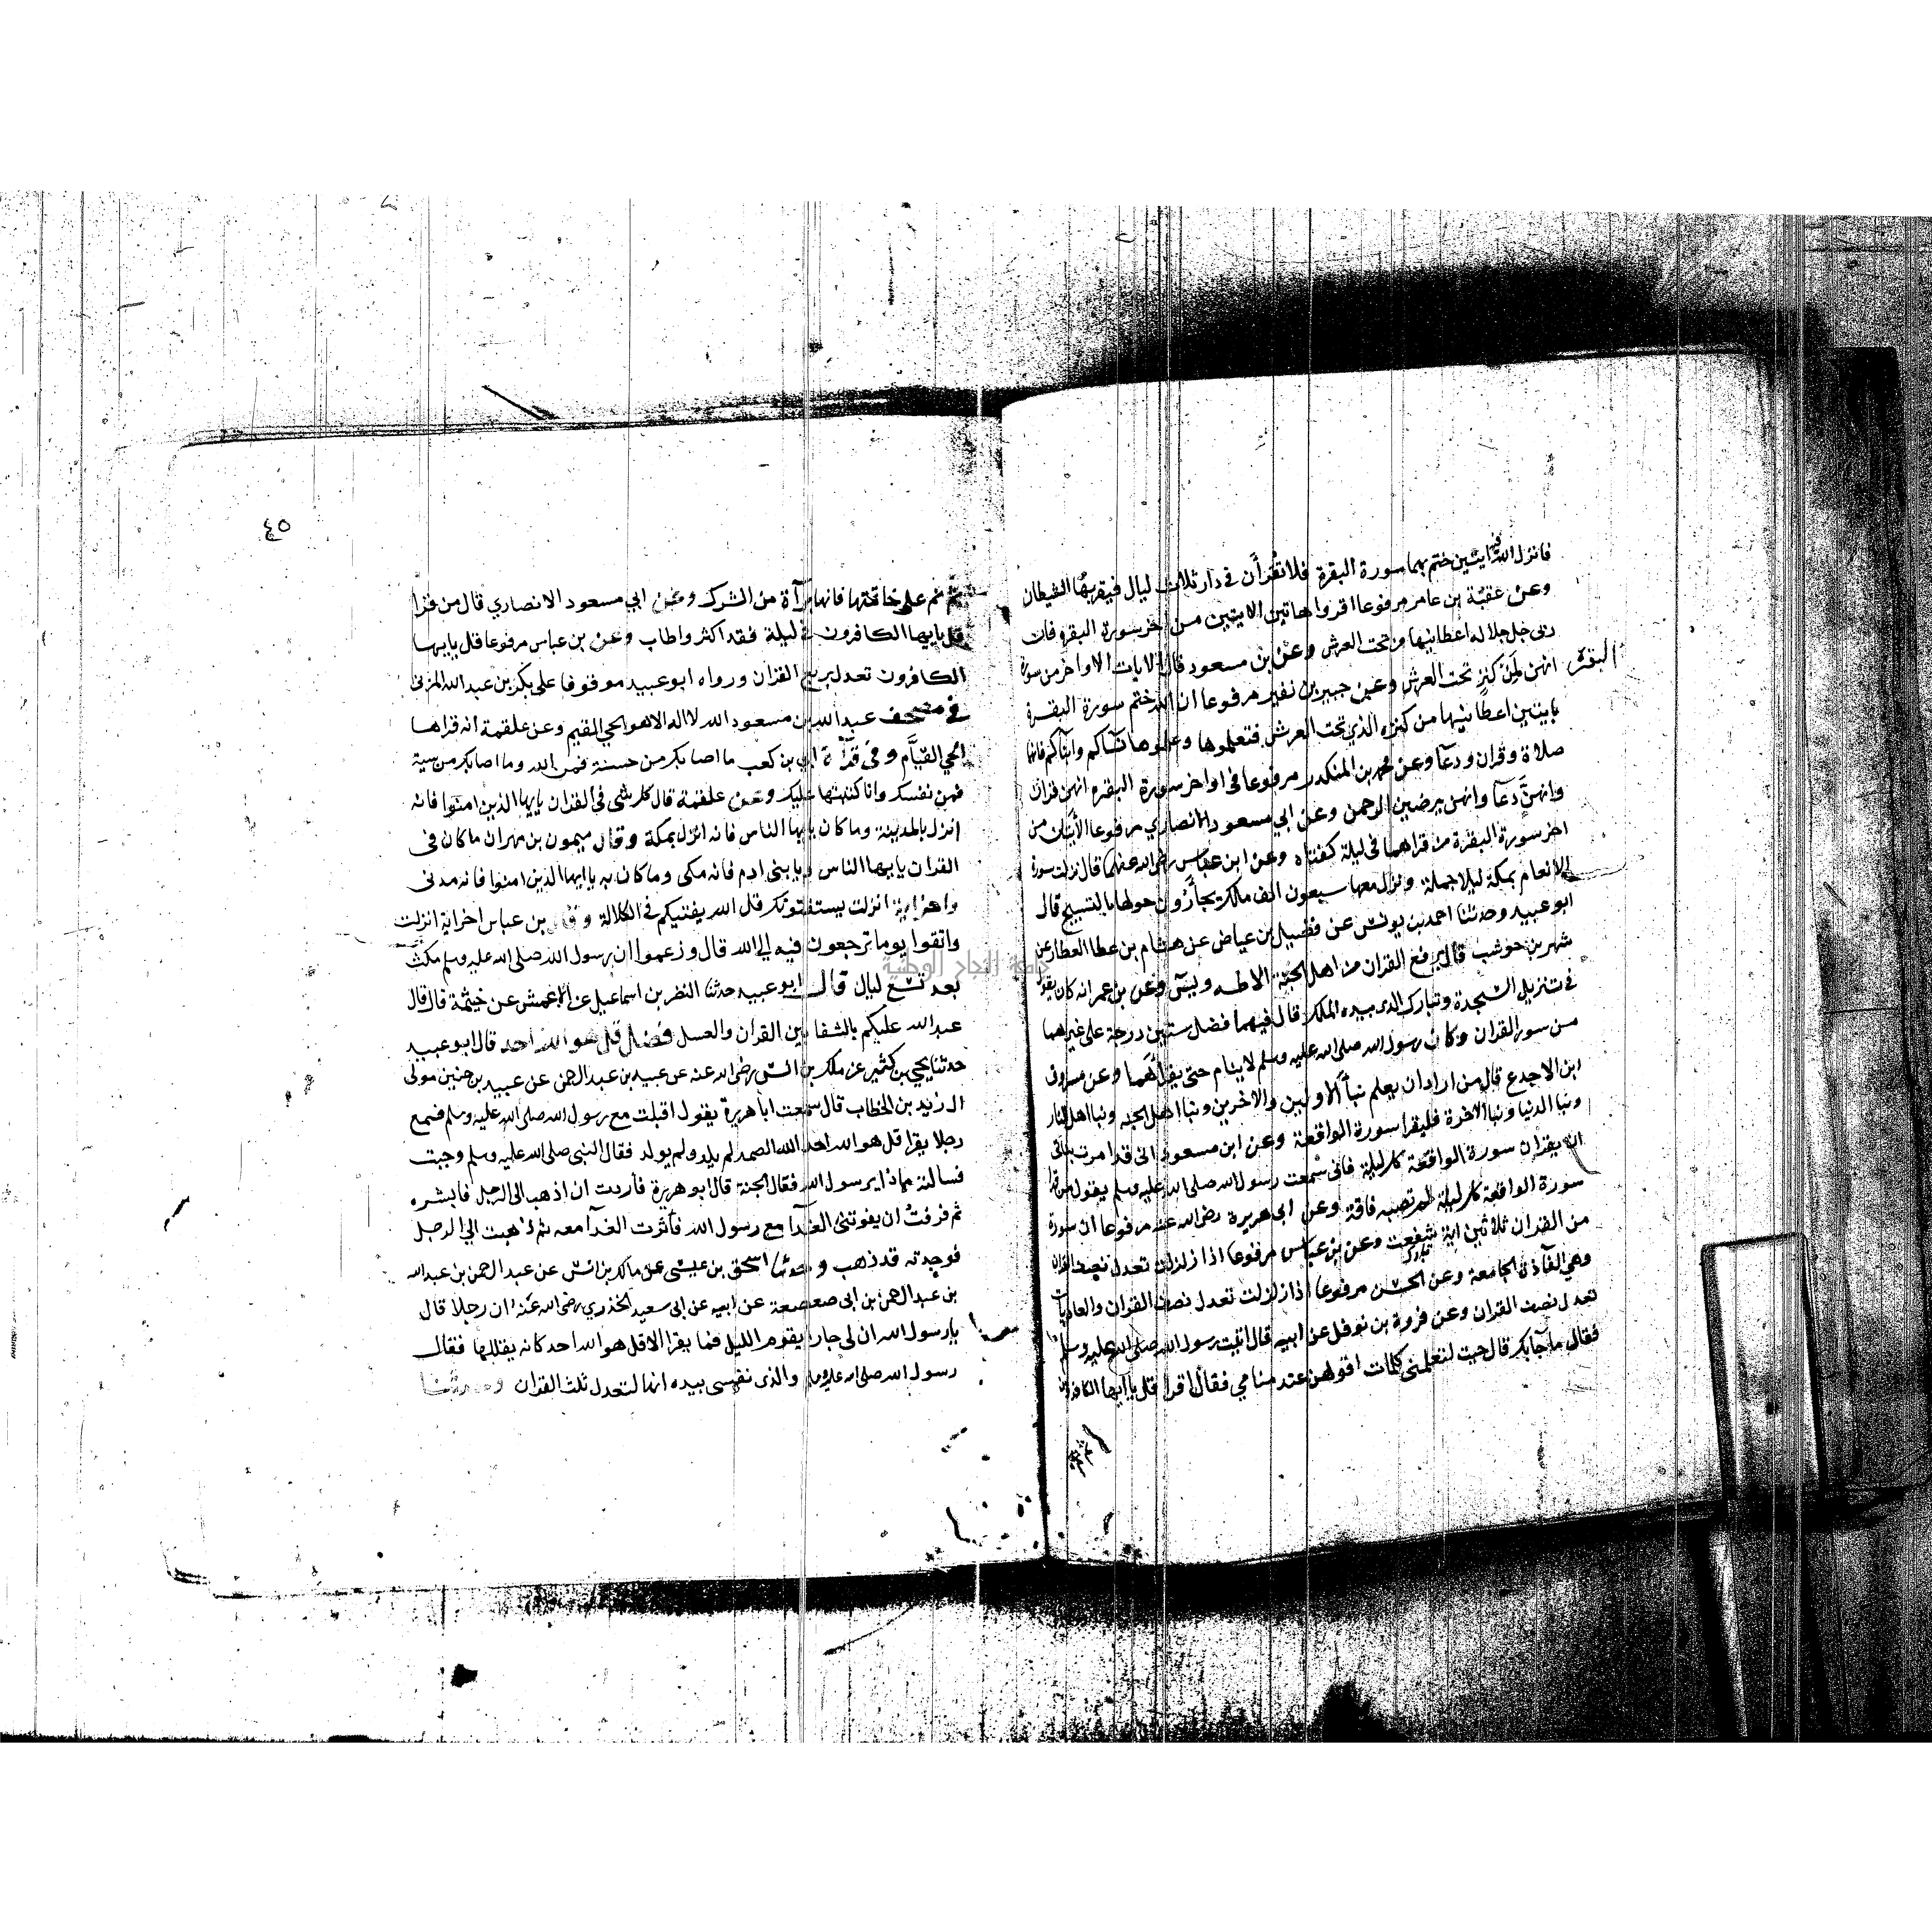 فانزل الله منه ايتين ختم بهما سورة البقرة فلا تقرأن في دار ثلاث ليال فيقربها الشيطان
وعن عقبة بن عامر مرفوعا اقروا هاتين الايتين من اخر سورة البقره فان
ربى جل جلاله اعطانيها من تحت العرش وعن بن مسعود قال الايات الاواخر من سورة
البقرة
انهن لمن كنز تحت العرش وعن جبير بن نفير مرفوعا ان الله ختم سورة البقرة
بايتين اعطانيها من كنزه الذي تحت العرش فتعلموها وعلموها نسآكم وابنآكم فانها
صلاة وقران ودعآ وعن محمد بن المنكدر مرفوعا في اواخر سورة البقره انهن قران
وانهن دعآ وانهن يرضين الرحمن وعن ابي مسعود الانصاري مرفوعا الأيتان من
اخر سورة البقرة من قراهما في ليلة كفتاه وعن ابن عباس رضي الله عنهما قال نزلت سورة
الانعام بمكة ليلا جملة ونزل معها سبعون الف ملك يجأرون حولها بالتسبيح قال
ابو عبيد وحدثنا احمد بن يونس عن فضيل بن عياض عن هشام بن عطا العطار عن
شهر بن حوشب قال يرفع القران من اهل الجنة الا طه ويس وعن بن عمر انه كان يقول
في تنزيل السجدة وتبارك الذى بيده الملك قال فيهما فضل ستين درجة على غيرهما
من سور القران وكان رسول الله صلى الله عليه وسلم لا ينام حتى يقرأهما وعن مسروق
ابن الاجدع قال من اراد ان يعلم نبأ الاولين والاخرين ونبا اهل الجنه ونبا اهل النار
ونبا الدنيا ونبا الاخرة فليقرا سورة الواقعة وعن ابن مسعود انى قد امرت بناتى
ان يقران سورة الواقعة كل ليلة فانى سمعت رسول الله صلى الله عليه وسلم يقول من قرا
سورة الواقعة كل ليلة لم تصبه فاقة وعن ابى هريرة رضى الله عنه مرفوعا ان سورة
من القران ثلاثين اية شفعت وعن بن عباس مرفوعا اذا زلزلت تعدل نصف القران
تبارك
وهي الفآذة الجامعة وعن الحسن مرفوعا اذا زلزلت تعدل نصف القران والعاديات
تعدل نصف القران وعن فروة بن نوفل عن ابيه قال اتيت رسول الله صلى الله عليه وسلم
فقال ما جآ بك قال جيت لتعلمنى كلمات اقولهن عند منامي فقال اقرا قل يا ايها الكافرون
٤٥
ثم نم على خاتمتها فانها برآة من الشرك وعن ابي مسعود الانصاري قال من قرأ
قل يا ايها الكافرون في ليلة فقد اكثر واطاب وعن بن عباس مرفوعا قل يا ايها
الكافرون تعدل بربع القران ورواه ابو عبيد موقوفا على بكر بن عبد الله المزنى
في مصحف عبد الله بن مسعود الله لا اله الا هو الحي المقيم وعن علقمة انه قراها
الحي القيّام وفى قرآة ابي بن كعب ما اصابك من حسنة فمن الله وما اصابك من سية
فمن نفسك وانا كتبتها عليك وعن علقمة قال كل شى في القران يا ايها الذين امنوا فانه
انزل بالمدينة وما كان يا ايها الناس فانه انزل بمكة وقال ميمون بن مهران ما كان في
القران يا ايها الناس او يا بنى ادم فانه مكى وما كان به يا ايها الذين امنوا فانه مدنى
واخر اية انزلت يستفتونك قل الله يفتيكم في الكلالة وقال بن عباس اخر اية انزلت
واتقوا يوما ترجعون فيه الى الله قال وزعموا ان رسول الله صلى الله عليه وسلم مكث
بعد تسع ليال قال ابو عبيد حدثنا النضر بن اسماعيل عن الاعمش عن خيثمة قال قال
عبد الله عليكم بالشفا ين القران والعسل فضل قل هو الله احد قال ابو عبيد
حدثنا يحيى بن كثير عن ملك بن انس رضى الله عنه عن عبيد بن عبد الرحمن عن عبيد بن حنين مولى
ال زيد بن الخطاب قال سمعت ابا هريرة يقول اقبلت مع رسول الله صلى الله عليه وسلم فسمع
رجلا يقرا قل هو الله احد الله الصمد لم يلد ولم يولد فقال النبي صلى الله عليه وسلم وجبت
فسالته ماذا يرسول الله فقال الجنة قال ابو هريرة فأردت ان اذهب الى الرجل فابشره
ثم فرقت ان يفوتنى الغدآ مع رسول الله فآثرت الغدآ معه ثم ذهبت الي الرجل
فوجدته قد ذهب وحدثنا اسحق بن عيسى عن مالك بن انس عن عبد الرحمن بن عبد الله
بن عبد الرحمن بن ابى صعصعة عن ابيه عن ابى سعيد الخدري رضى الله عنه ان رجلا قال
يا رسول الله ان لي جارا يقوم الليل فما يقرا الا قل هو الله احد كانه يقللها فقال
رسول الله صلى الله عليه وسلم والذى نفسى بيده انها لتعدل ثلث القران وحدثنا
جامعة النجاح الوطنية